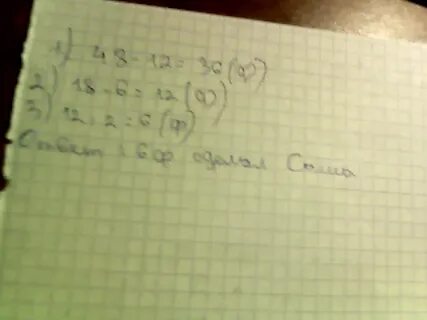 1) 48-12=36(ф)
2) 18-6=12(ф)
3) 12:2=6(ф)
Ответ: 6ф сделал Саша